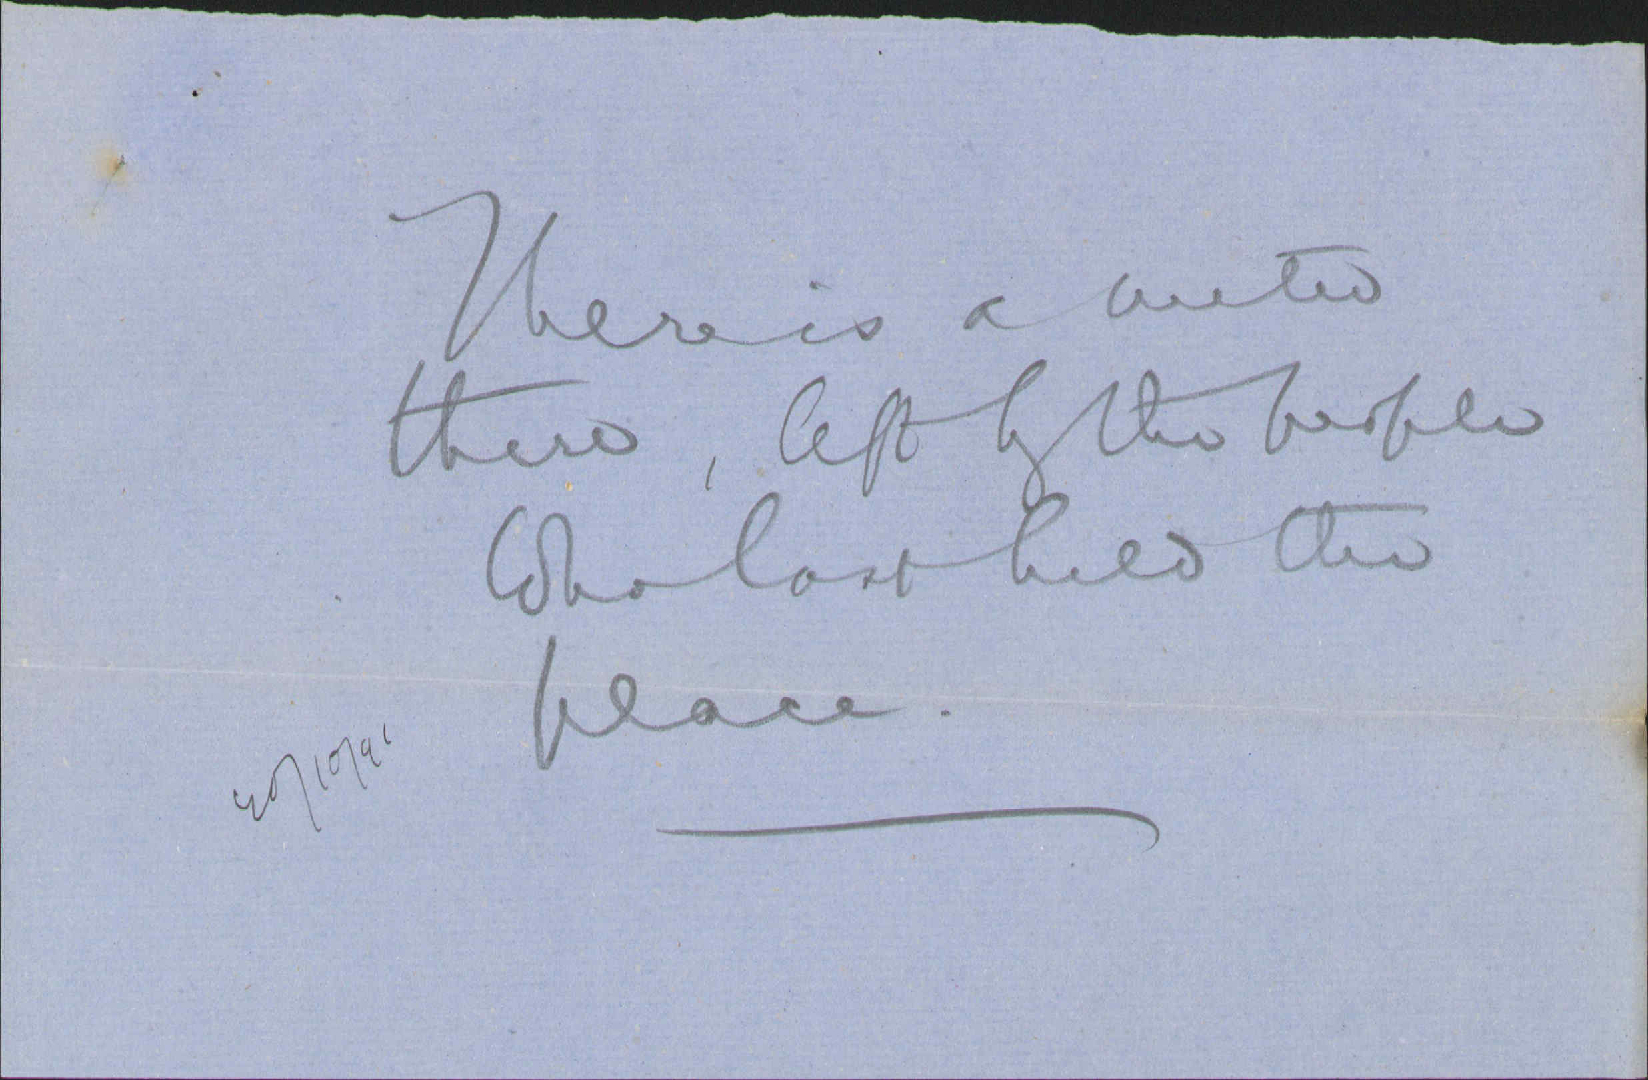 There is a meter
there, left by the people
who last held the
place.
20/10/91